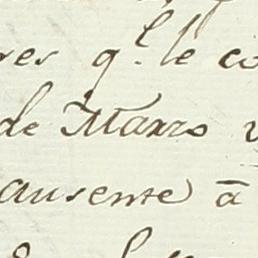 res q.l le co
de Marzo v
ausente à